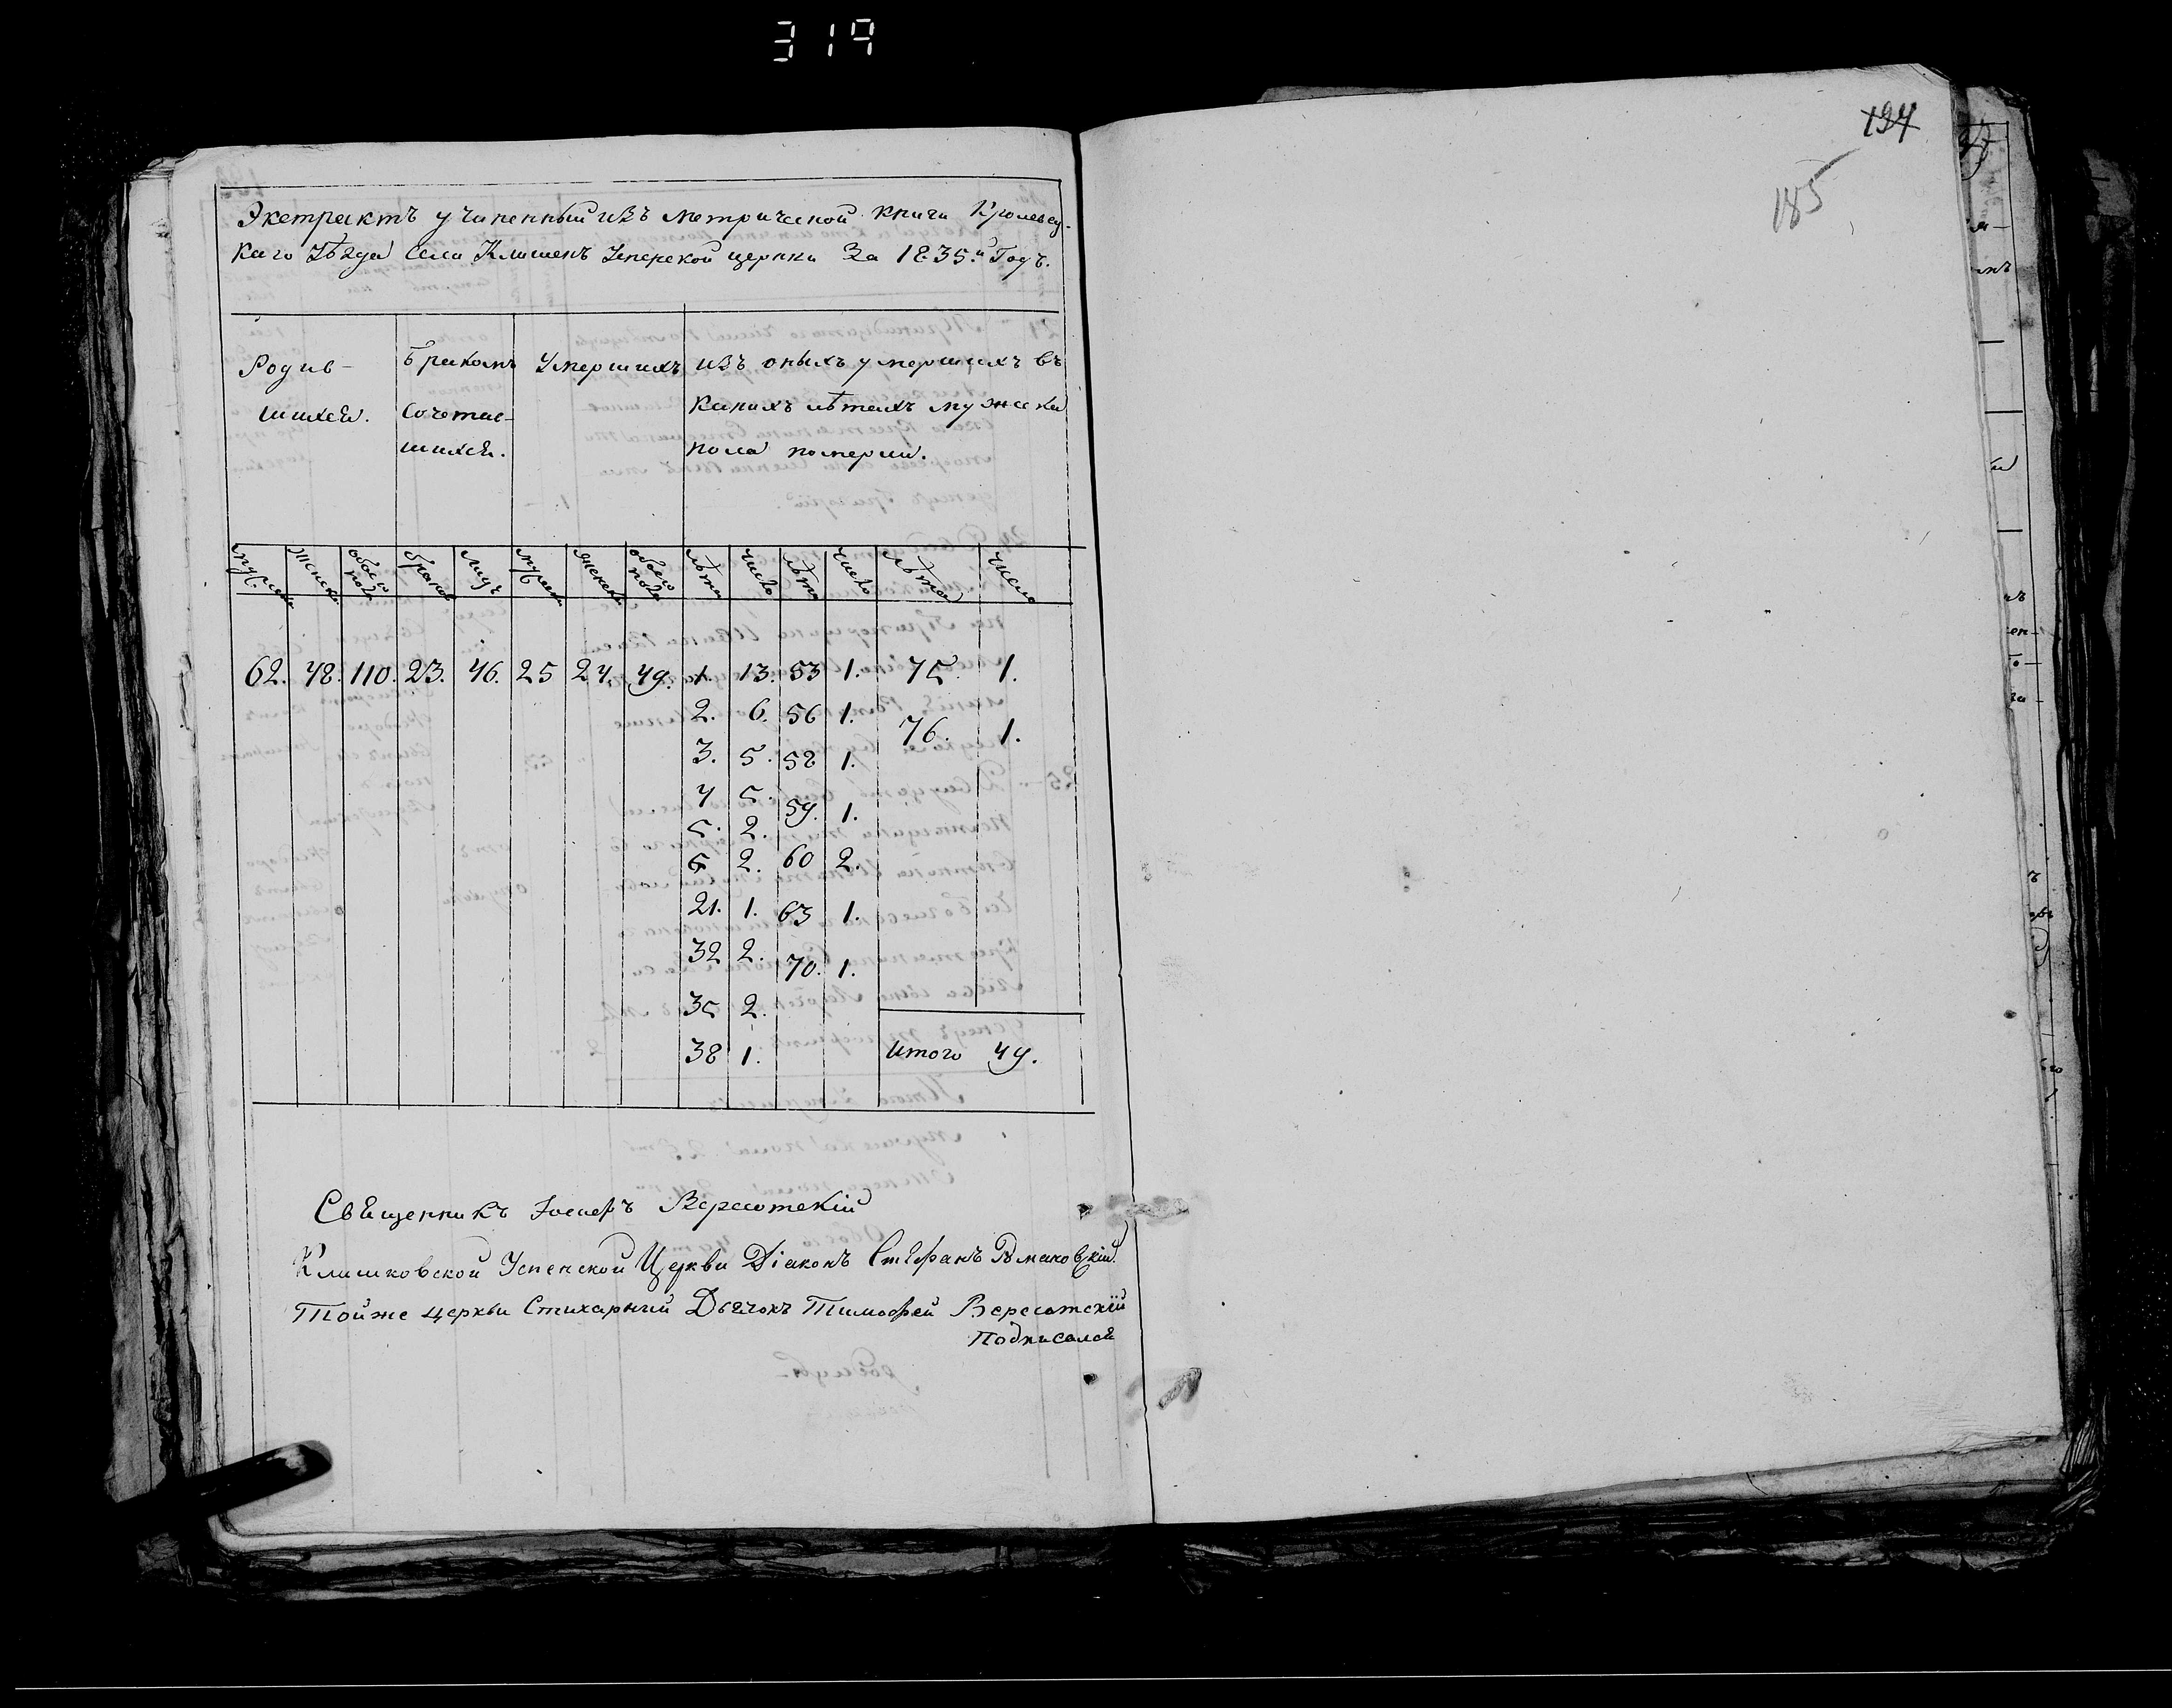 319
194
185
Экстрактъ учиненный изъ метрической книги Кролевец-
каго уѣзда села Клишекъ Успенской церкви за 1835й Годъ.
Родив- Бракомъ Умершихъ изъ оныхъ умершихъ въ
шихся. Сочетав- какихъ лѣтахъ мужеска
шихся. пола померли.
мужеска женска обоего пола браковъ лицъ мужеска женска обоего пола лѣта число лѣта число лѣта число
62. 48. 110. 23. 46. 25 24. 49. 1. 13. 53 1. 75. 1.
2. 6. 56 1. 76. 1.
3. 5. 58 1.
4 5. 59. 1.
5. 2.
6 2. 60 2.
21. 1. 63 1.
32 2. 70. 1.
35 2.
38 1. Итого 49.
Священникъ Іосифъ Вересотскій
Клишковской Успенской Церкви Діаконъ Стефанъ
Тойже церкви Стихарный Дьячокъ Тимофей Вересотскій
Подписался